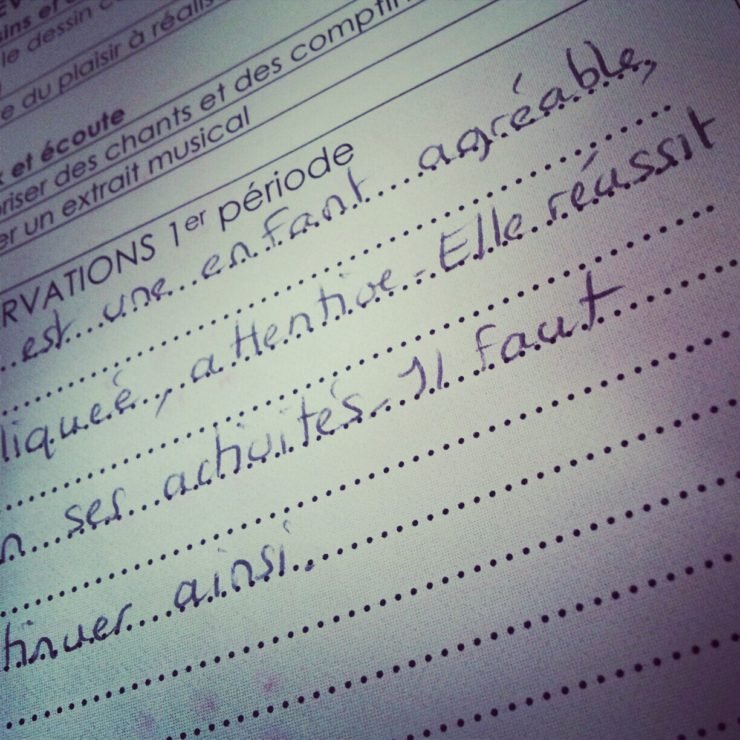 le dessin c
e du plaisir à réalis
x et écoute
oriser des chants et des comptin
er un extrait musical
RVATIONS 1er période
est une enfant agréable,
liqueé, attentive. Elle réussit
n ses activités. Il faut
tinuer ainsi.